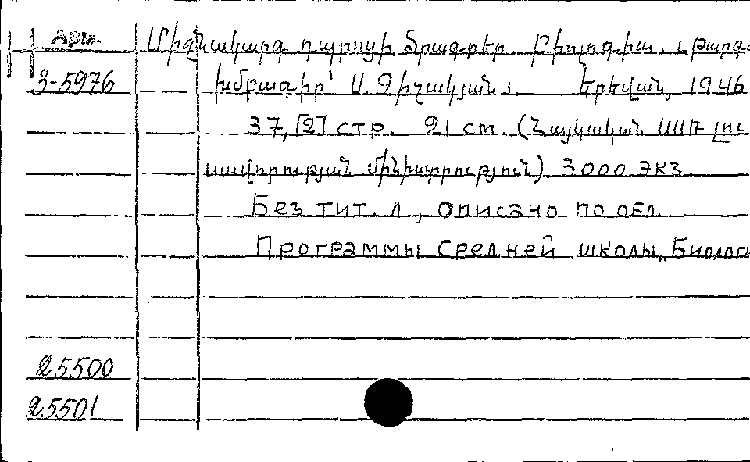 Арм.
Միջնակարգ դպրոցի ծրագրեր. Բիոլոգիա. Թարգ.
3-5976
խմբագիր՝ Երևան, 1946
37, [2] стр. 21 см. (Հայկական ՍՍՌ լու
սավորության մինիստրություն) 3000 экз
Без тит. л., описано по обл.
Программы средней школы, Биолог
25500
25501